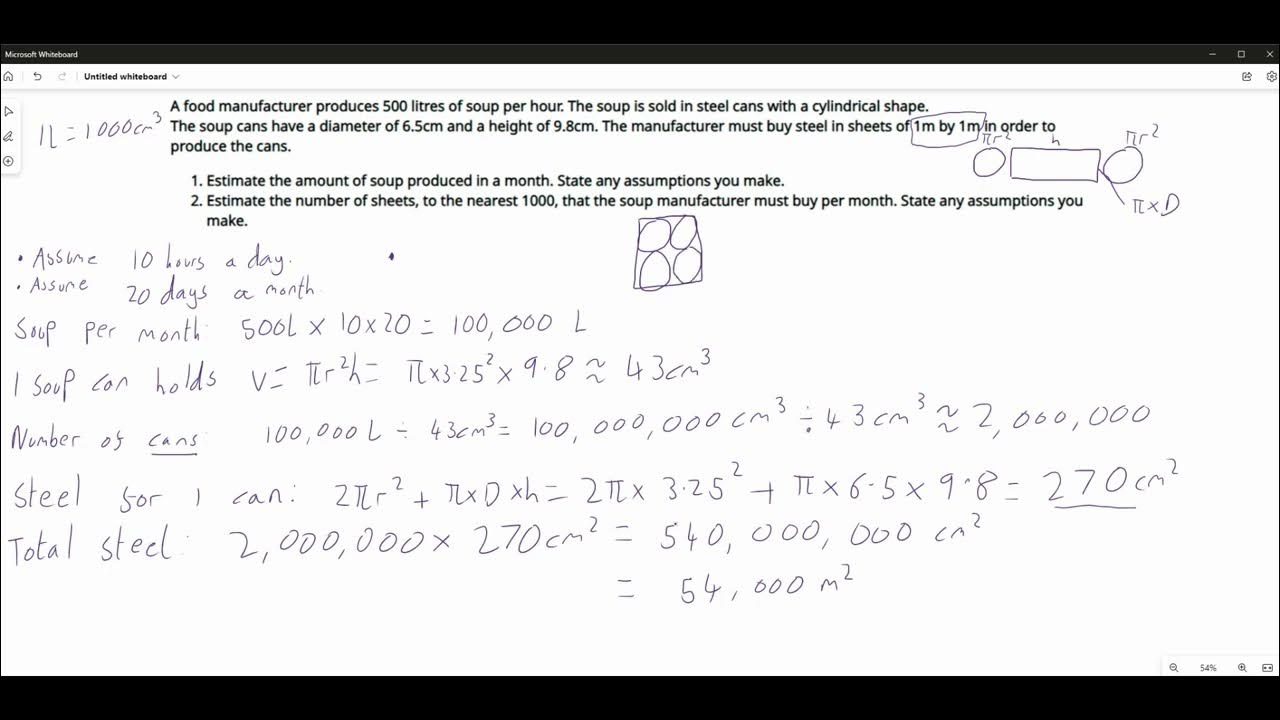 Microsoft Whiteboard
Untitled whiteboard
1L = 1000cm³
A food manufacturer produces 500 litres of soup per hour. The soup is sold in steel cans with a cylindrical shape.
The soup cans have a diameter of 6.5cm and a height of 9.8cm. The manufacturer must buy steel in sheets of 1m by 1m in order to
produce the cans.
πr² h πr²
π×D
1. Estimate the amount of soup produced in a month. State any assumptions you make.
2. Estimate the number of sheets, to the nearest 1000, that the soup manufacturer must buy per month. State any assumptions you
make.
• Assume 10 hours a day.
• Assume 20 days a month.
Soup per month: 500L × 10 × 20 = 100,000 L
1 soup can holds V = πr²h = π×3.25²×9.8 ≈ 43cm³
Number of cans: 100,000L ÷ 43cm³ = 100,000,000cm³ ÷ 43cm³ ≈ 2,000,000
Steel for 1 can: 2πr² + π×D×h = 2π × 3.25² + π × 6.5 × 9.8 = 270cm²
Total steel: 2,000,000 × 270cm² = 540,000,000 cm²
= 54,000 m²
54%